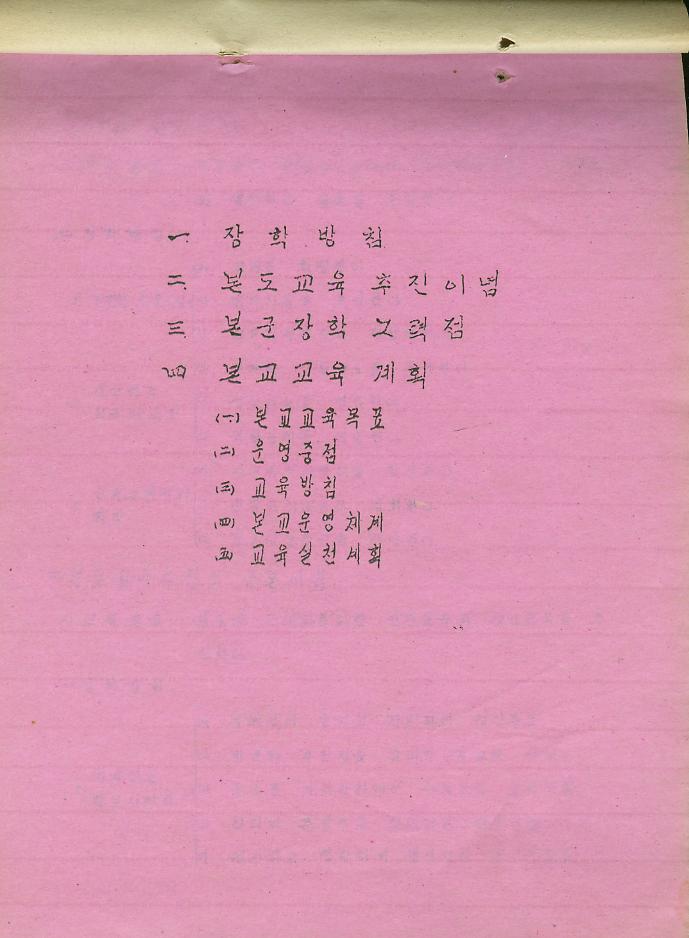 一. 장학방침
二. 본도교육 추진이념
三. 본군장학 노력점
四. 본교교육 계획
(一) 본교교육목표
(二) 운영중점
(三) 교육방침
(四) 본교운영체계
(五) 교육실천세획